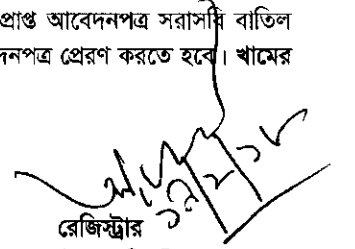 প্রাপ্ত আবেদনপত্র সরাসরি বাতিল
দনপত্র প্রেরণ করতে হবে। খামের
রেজিস্ট্রার